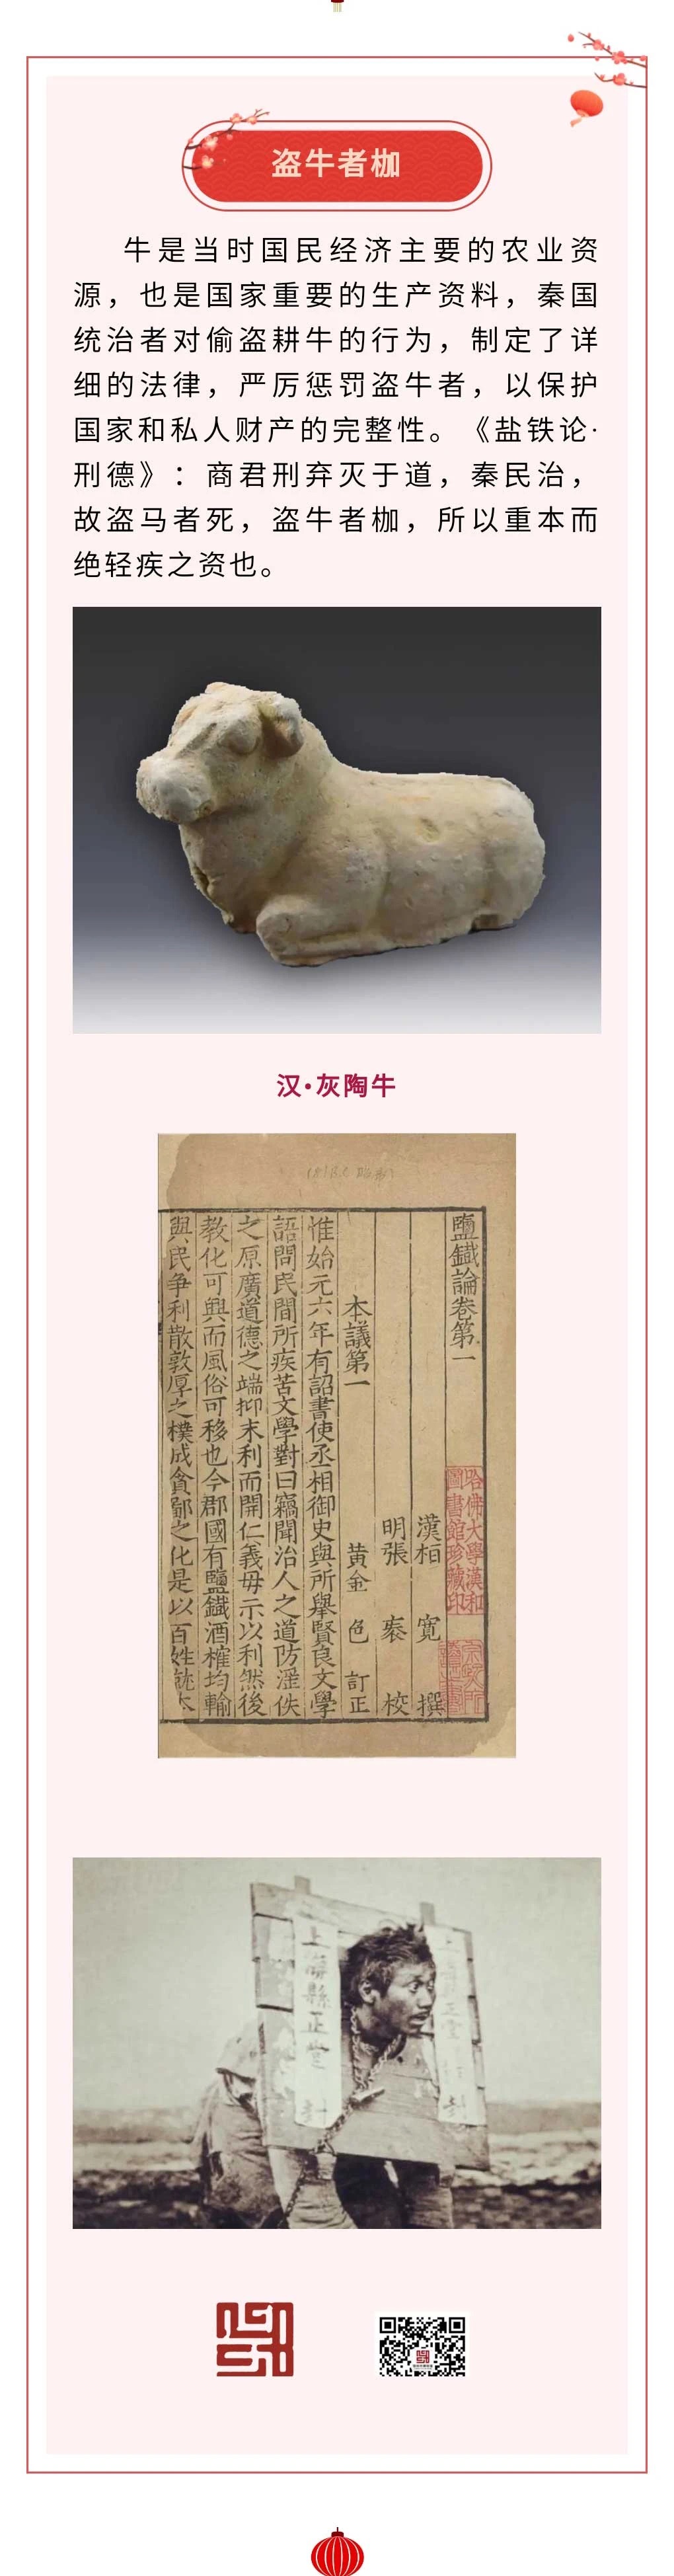 盗牛者枷
牛是当时国民经济主要的农业资
源，也是国家重要的生产资料，秦国
统治者对偷盗耕牛的行为，制定了详
细的法律，严厉惩罚盗牛者，以保护
国家和私人财产的完整性。《盐铁论·
刑德》：商君刑弃灭于道，秦民治，
故盗马者死，盗牛者枷，所以重本而
绝轻疾之资也。
汉·灰陶牛
鹽鐵論卷第一
哈佛大學漢和
圖書館珍藏印
漢桓寬撰
明張袠校
本議第一 黃金色訂正
惟始元六年有詔書使丞相御史與所舉賢良文學
語問民間所疾苦文學對曰竊聞治人之道防淫佚
之原廣道德之端抑末利而開仁義毋示以利然後
教化可興而風俗可移也今郡國有鹽鐵酒榷均輸
與民争利散敦厚之樸成貪鄙之化是以百姓就本
上海縣正堂 封